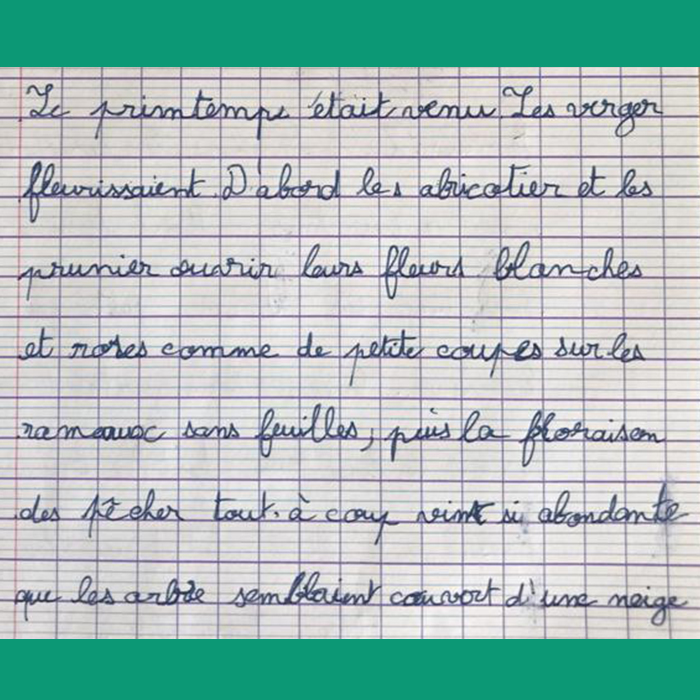 Le printemps était venu. Les verger
fleurissaient. D'abord les abricotier et les
prunier ouvrir leurs fleurs blanches
et roses comme de petite coupes sur les
rameaux sans feuilles, puis la floraison
des pêcher tout. à coup vint si abondante
que les arbre semblaient couvort d'une neige